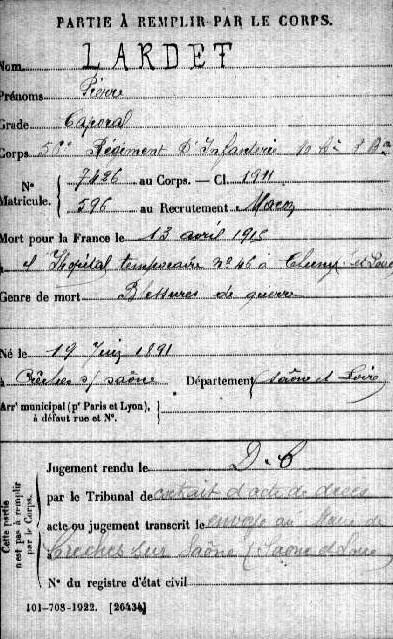 PARTIE À REMPLIR PAR LE CORPS.
Nom LARDET
Prénoms Pierre
Grade Caporal
Corps 56e Régiment d'Infanterie 10
N° 7426 au Corps. — Cl. 1911
Matricule. 596 au Recrutement Macon
Mort pour la France le 13 avril 1915
à l'hôpital temporaire n° 46 à Cluny
Genre de mort Blessures de guerre
Né le 19 Juin 1891
à Crêches s/ saône Département Saône et Loire
Arrt municipal (pr Paris et Lyon),
à défaut rue et N°.
Cette partie
n'est pas à remplir
par le Corps.
Jugement rendu le D. C
par le Tribunal de extrait d'acte de décès
acte ou jugement transcrit le envoyé au Maire de
Creches sur Saône (Saone et Loire
N° du registre d'état civil
101-708-1922. [26434]